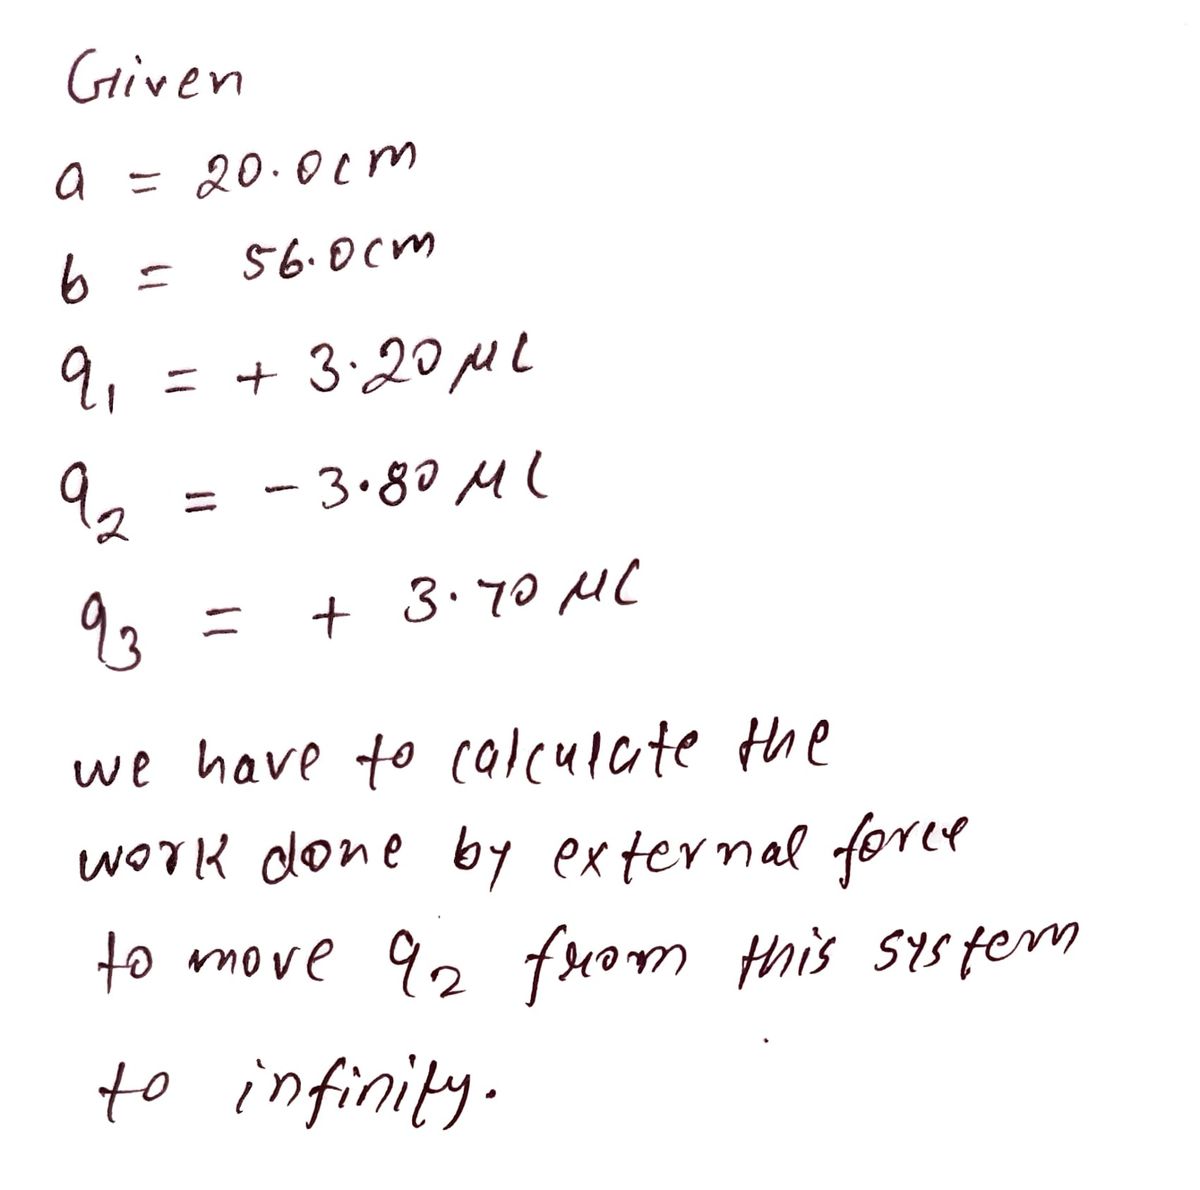 Given
a = 20.0cm
b = 56.0cm
q₁ = + 3.20 μC
q₂ = - 3.80 μC
q₃ = + 3.70 μC
we have to calculate the
work done by external force
to move q₂ from this system
to infinity.